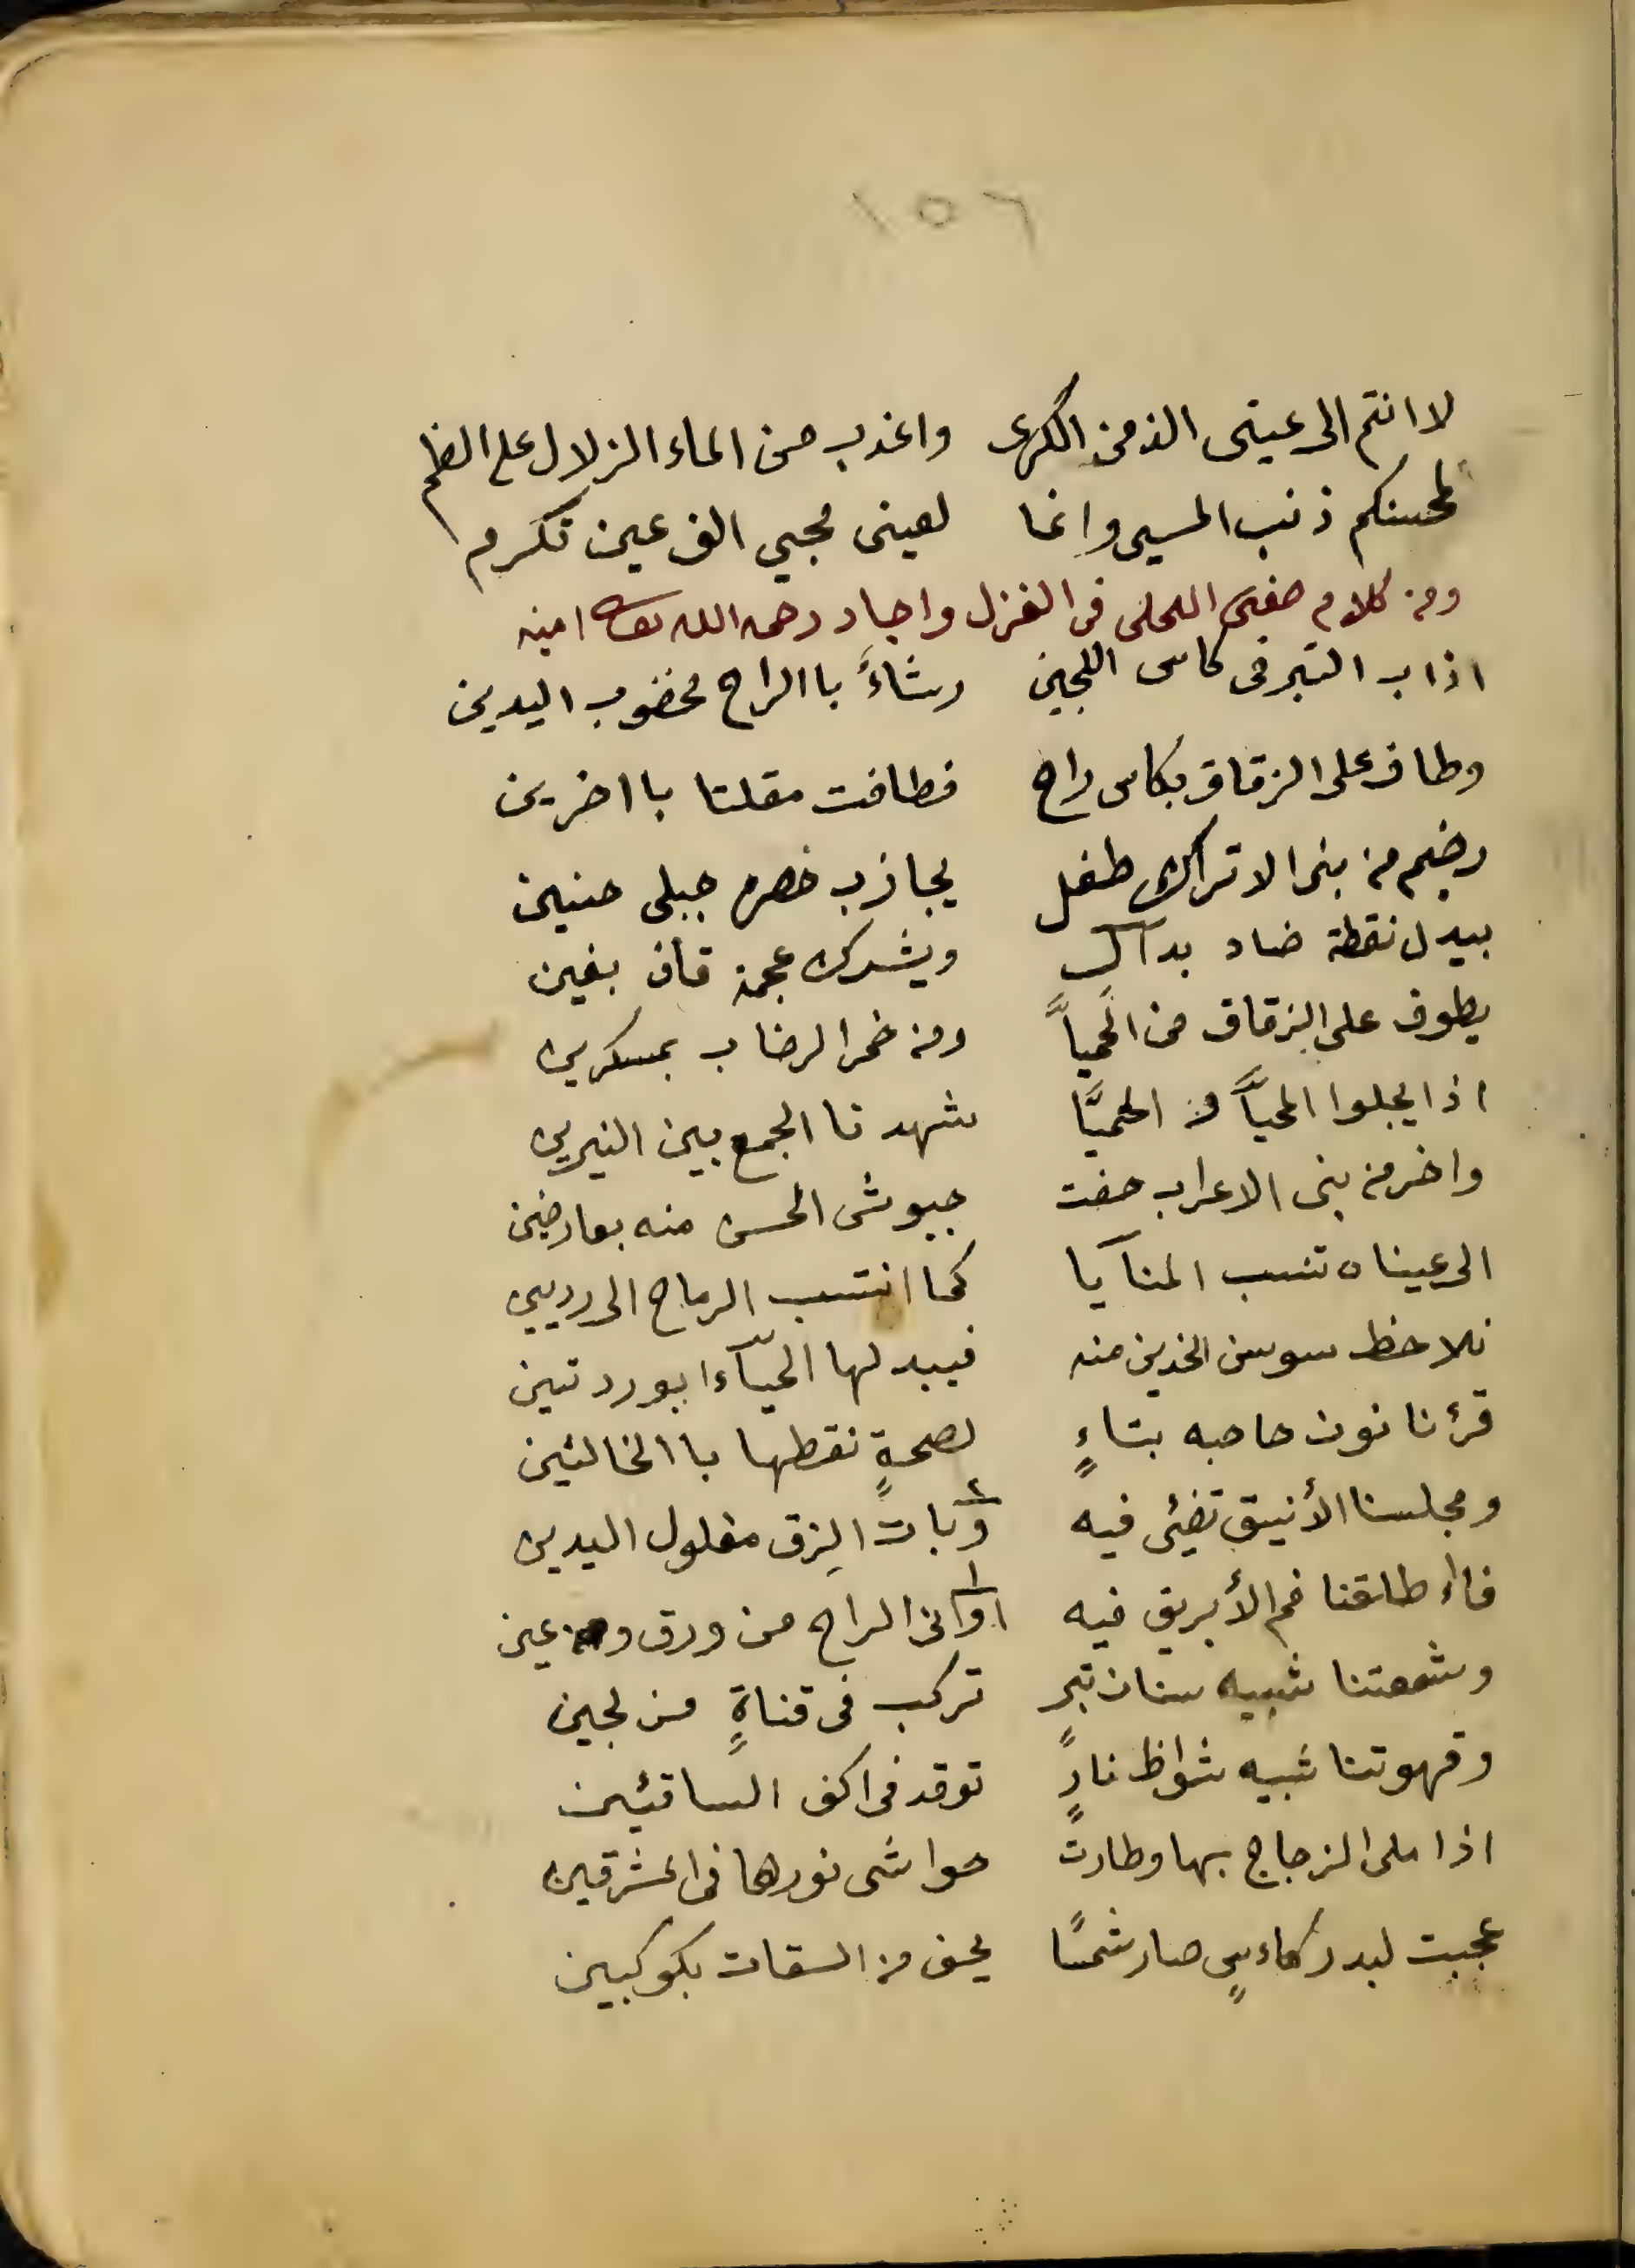 ١٥٦
لا انتم الى عينى الذ من الكرى واعذب من الماء الزلال على الظم
لمحسنكم ذنب المسيى وانما لعينى محبي الف عين تكرم
ومن كلام صفى الحلى فى الغزل واجاد رحمه الله تعالى امين
اذاب التبر فى كاس اللجين رشاءً باالراح مخضوب اليدين
وطاف على الزقاق بكاس راح فطافت مقلتا بااخرين
رخيم من بنى الاتراك طفل يجاذب خصره جبلى حنين
يبدل نقطة ضاد بدال ويشرك عجمة قاف بغين
يطوف على الزقاق من الحمياً ومن خمر الرضاب بمسكرين
اذا يجلوا المحياً من الحمياً شهدنا الجمع بين النيرين
واخر من بنى الاعراب حفت جيوش الحسن منه بعارضين
الى عيناه تنسب المنآيا كما انتسب الرماح الى رديين
نلاحظ سوسن الخدين منه فيبدلها الحيآءا بوردتين
قرئنا نون حاجبه بتاءٍ لصحةٍ نقطها باالخالئين
ومجلسنا الأنيق تضئى فيه ٢ وبات الزق مغلول اليدين
فااء طلقنا فم الأبريق فيه ١ اوانى الراح من ورق ومن عين
وشمعتنا شبيه سنان تبر تركب فى قناةٍ من لجين
وقهوتنا شبيه شواظ نارٍ توقد فى اكف الساقئين
اذا ملى الزجاج بها وطارت حواشى نورها فى المشرقين
عجبت لبدر كاءسٍ صار شمسًا يحف من السقات بكوكبين